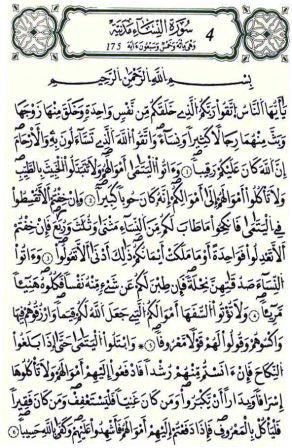 سورة النساء مدنية
4
وهي مائة وخمس وسبعون آية 175
بسم الله الرحمن الرحيم
يَٰأَيُّهَا النَّاسُ اتَّقُوا رَبَّكُمُ الَّذِي خَلَقَكُم مِّن نَّفْسٍ وَٰحِدَةٍ وَخَلَقَ مِنْهَا زَوْجَهَا
وَبَثَّ مِنْهُمَا رِجَالًا كَثِيرًا وَنِسَاءً وَاتَّقُوا اللَّهَ الَّذِي تَسَّاءَلُونَ بِهِ وَالْأَرْحَامَ
إِنَّ اللَّهَ كَانَ عَلَيْكُمْ رَقِيبًا ① وَءَاتُوا الْيَتَٰمَىٰ أَمْوَٰلَهُمْ وَلَا تَتَبَدَّلُوا الْخَبِيثَ بِالطَّيِّبِ
وَلَا تَأْكُلُوا أَمْوَٰلَهُمْ إِلَىٰ أَمْوَٰلِكُمْ إِنَّهُ كَانَ حُوبًا كَبِيرًا ② وَإِنْ خِفْتُمْ أَلَّا تُقْسِطُوا
فِي الْيَتَٰمَىٰ فَانكِحُوا مَا طَابَ لَكُم مِّنَ النِّسَاءِ مَثْنَىٰ وَثُلَٰثَ وَرُبَٰعَ فَإِنْ خِفْتُمْ
أَلَّا تَعْدِلُوا فَوَٰحِدَةً أَوْ مَا مَلَكَتْ أَيْمَٰنُكُمْ ذَٰلِكَ أَدْنَىٰ أَلَّا تَعُولُوا ③ وَءَاتُوا
النِّسَاءَ صَدُقَٰتِهِنَّ نِحْلَةً فَإِن طِبْنَ لَكُمْ عَن شَيْءٍ مِّنْهُ نَفْسًا فَكُلُوهُ هَنِيئًا
مَّرِيئًا ④ وَلَا تُؤْتُوا السُّفَهَاءَ أَمْوَٰلَكُمُ الَّتِي جَعَلَ اللَّهُ لَكُمْ قِيَمًا وَارْزُقُوهُمْ فِيهَا
وَاكْسُوهُمْ وَقُولُوا لَهُمْ قَوْلًا مَّعْرُوفًا ⑤ وَابْتَلُوا الْيَتَٰمَىٰ حَتَّىٰ إِذَا بَلَغُوا
النِّكَاحَ فَإِنْ ءَانَسْتُم مِّنْهُمْ رُشْدًا فَادْفَعُوا إِلَيْهِمْ أَمْوَٰلَهُمْ وَلَا تَأْكُلُوهَا
إِسْرَافًا وَبِدَارًا أَن يَكْبَرُوا وَمَن كَانَ غَنِيًّا فَلْيَسْتَعْفِفْ وَمَن كَانَ فَقِيرًا
فَلْيَأْكُلْ بِالْمَعْرُوفِ فَإِذَا دَفَعْتُمْ إِلَيْهِمْ أَمْوَٰلَهُمْ فَأَشْهِدُوا عَلَيْهِمْ وَكَفَىٰ بِاللَّهِ حَسِيبًا ⑥